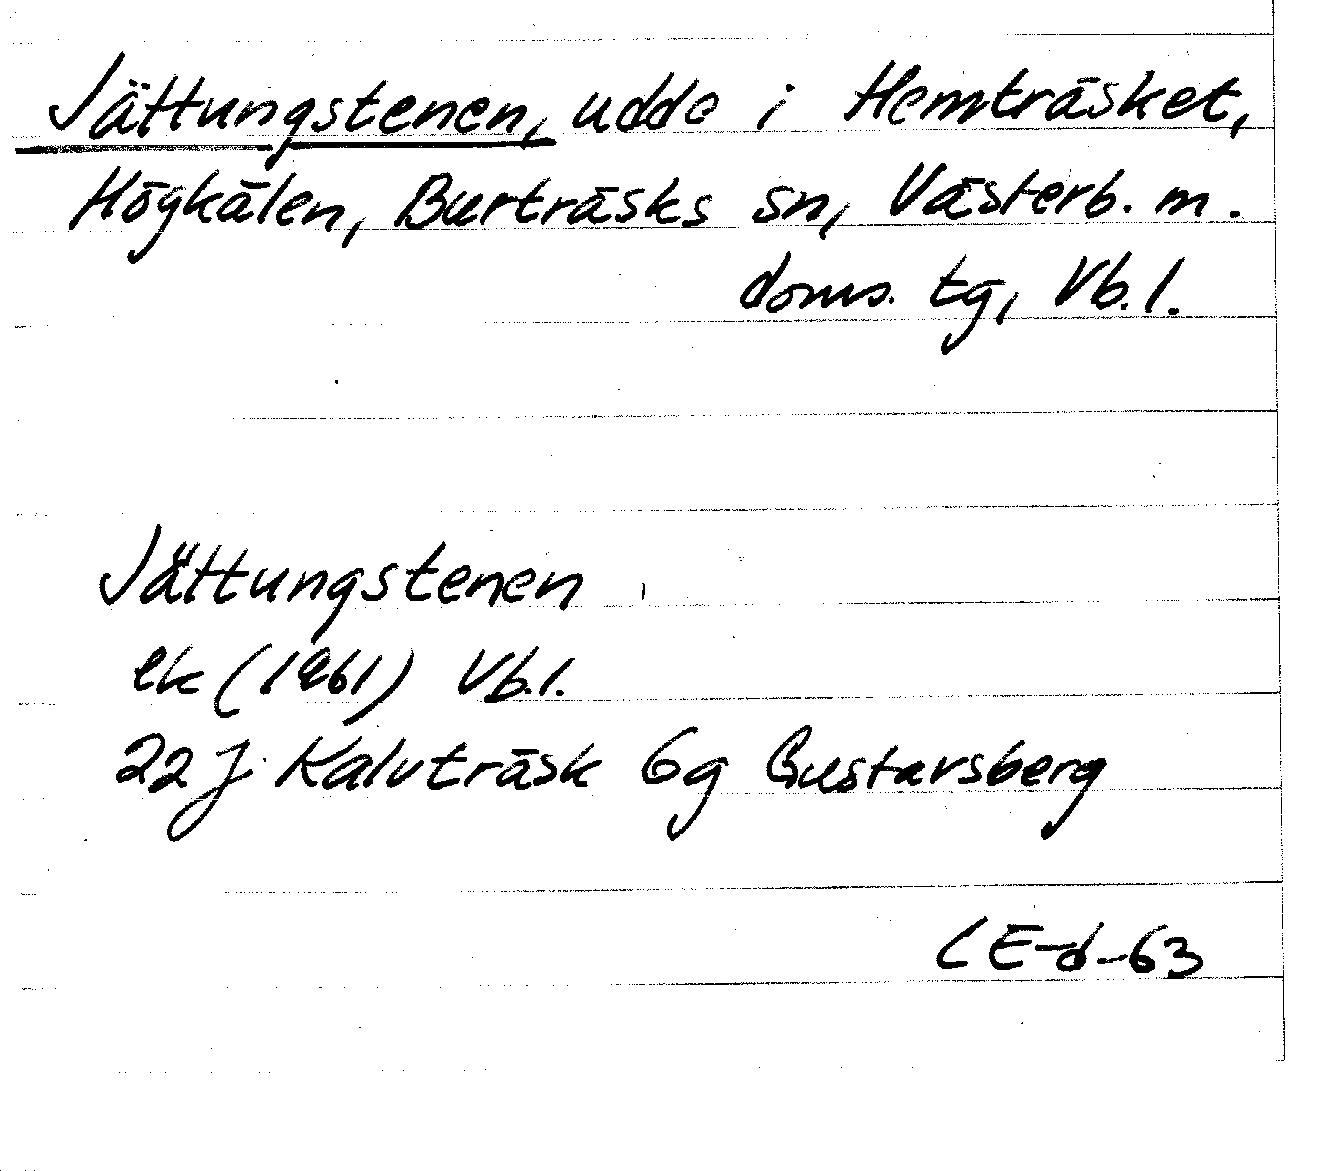 Jättungstenen, udde i Hemträsket,
Högkålen, Burträsks sn, Västerb. m.
doms. tg, Vb.l.
Jättungstenen
ek (1961) Vb.l.
22 J Kalvträsk 6g Gustavsberg
CE-d-63